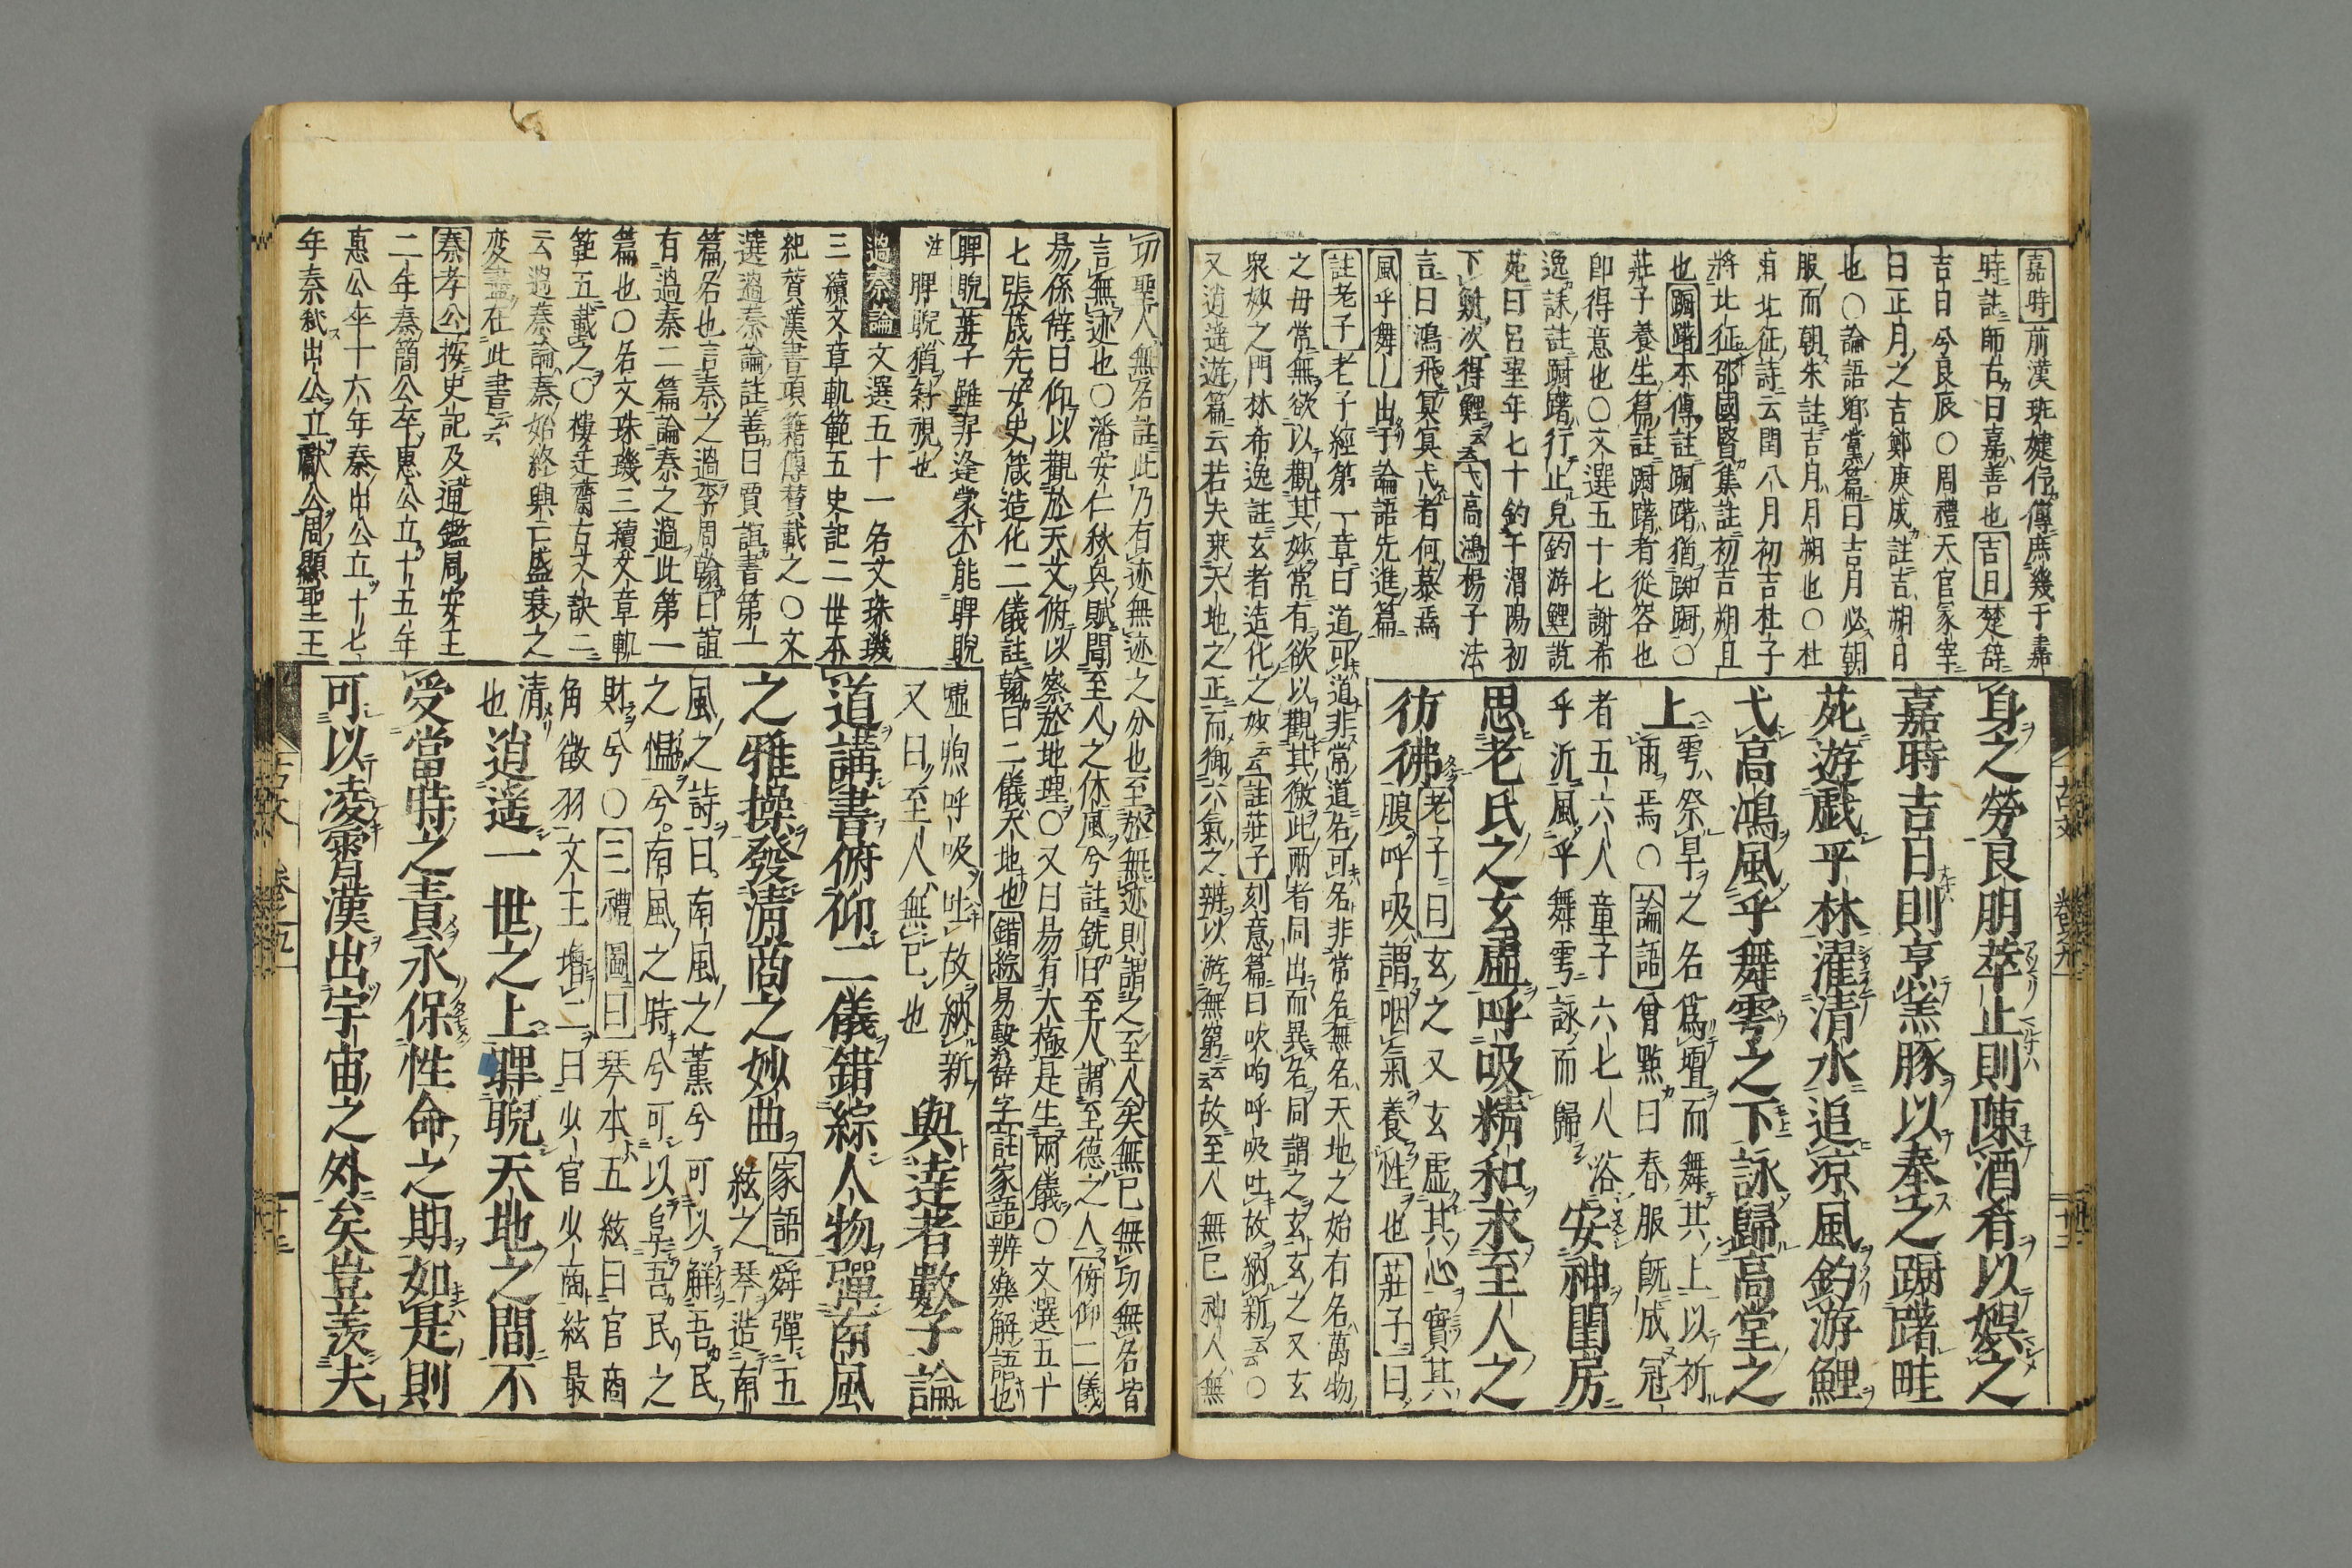 嘉時前漢班婕伃傳庶幾于嘉
時註師古曰嘉善也吉日楚辞
吉日兮良辰〇周禮天官冢宰
曰正月之吉鄭康成註吉朔日
也〇論語鄉黨篇曰吉月必朝
服而朝朱註吉月月朔也〇杜
甫北征詩云閏八月初吉杜子
將北征邵國賢集註初吉朔旦
也躊躇本傳註躊躇猶踟蹰〇
莊子養生篇註躊躇者從容也
即得意也〇文選五十七謝希
逸誄註躊躇行止皃釣游鯉説
苑曰呂望年七十釣于渭陽初
下魦次得鯉云云弋高鴻楊子法
言曰鴻飛冥冥弋者何慕焉
風乎舞—出于論語先進篇
註老子老子經第一章曰道可道非常道名可名非常名無名天地之始有名萬物
之毋常無欲以觀其妙常有欲以觀其徼此兩者同出而異名同謂之玄玄之又玄
衆妙之門林希逸註玄者造化之妙云云註莊子刻意篇曰吹呴呼吸吐故納新云云〇
又逍遙遊篇云若夫乘天地之正而御六氣之辨以游無窮云云故至人無已神人無
身之勞良朋萃止則陳酒肴以娯之
嘉時吉日則亨羔豚以奉之躊躇畦
苑遊戯平林濯清水追凉風釣游鯉
弋高鴻風乎舞雩之下詠歸高堂之
上雩祭旱之名爲壇而舞其上以祈
雨焉〇論語曾點曰春服既成冠
者五六人童子六七人浴
乎沂風乎舞雩詠而歸安神閨房
思老氏之玄虛呼吸精和求至人之
彷彿老子曰玄之又玄虛其心實其
腹呼吸謂咽氣養性也莊子曰
功聖人無名註此乃有迹無迹之分也至於無迹則謂之至人矣無已無功無名皆
言無迹也〇潘安仁秋興賦聞至人之休風兮註銑曰至人謂至德之人俯仰二儀
易係辞曰仰以觀於天文俯以察於地理〇又曰易有太極是生兩儀〇文選五十
七張茂先女史箴造化二儀註翰曰二儀天地也錯綜易繫辞字註家語辨樂解語也
睥睨莊子雖羿逢蒙不能睥睨
註睥睨猶斜視也
過秦論文選五十一名文珠璣
三續文章軌範五史記二世本
紀賛漢書項籍傳賛載之〇文
選過秦論註善曰賈誼書第一
篇名也言秦之過李周翰曰誼
有過秦二篇論秦之過此第一
篇也〇名文珠璣三續文章軌
範五載之〇樓迂齋古文訣二
云過秦論秦始終興亡盛衰之
変盡在此書云云
秦孝公按史記及通鑑周安王
二年秦簡公卒惠公立十五年
惠公卒十六年秦出公立十七
年秦弑出公立獻公周顯聖王
嘘煦呼吸吐故納新
又曰至人無已也與達者數子論
道講書俯仰二儀錯綜人物彈南風
之雅操發清商之妙曲家語舜彈五
絃之琴造南
風之詩曰南風之薰兮可以觧吾民
之慍兮南風之時兮可以阜吾民之
財兮〇三禮圖曰琴本五絃曰宮商
角徵羽文王増二曰少宮少商絃最
清
也逍遥一世之上睥睨天地之間不
受當時之責永保性命之期如是則
可以凌霄漢出宇宙之外矣豈羨夫